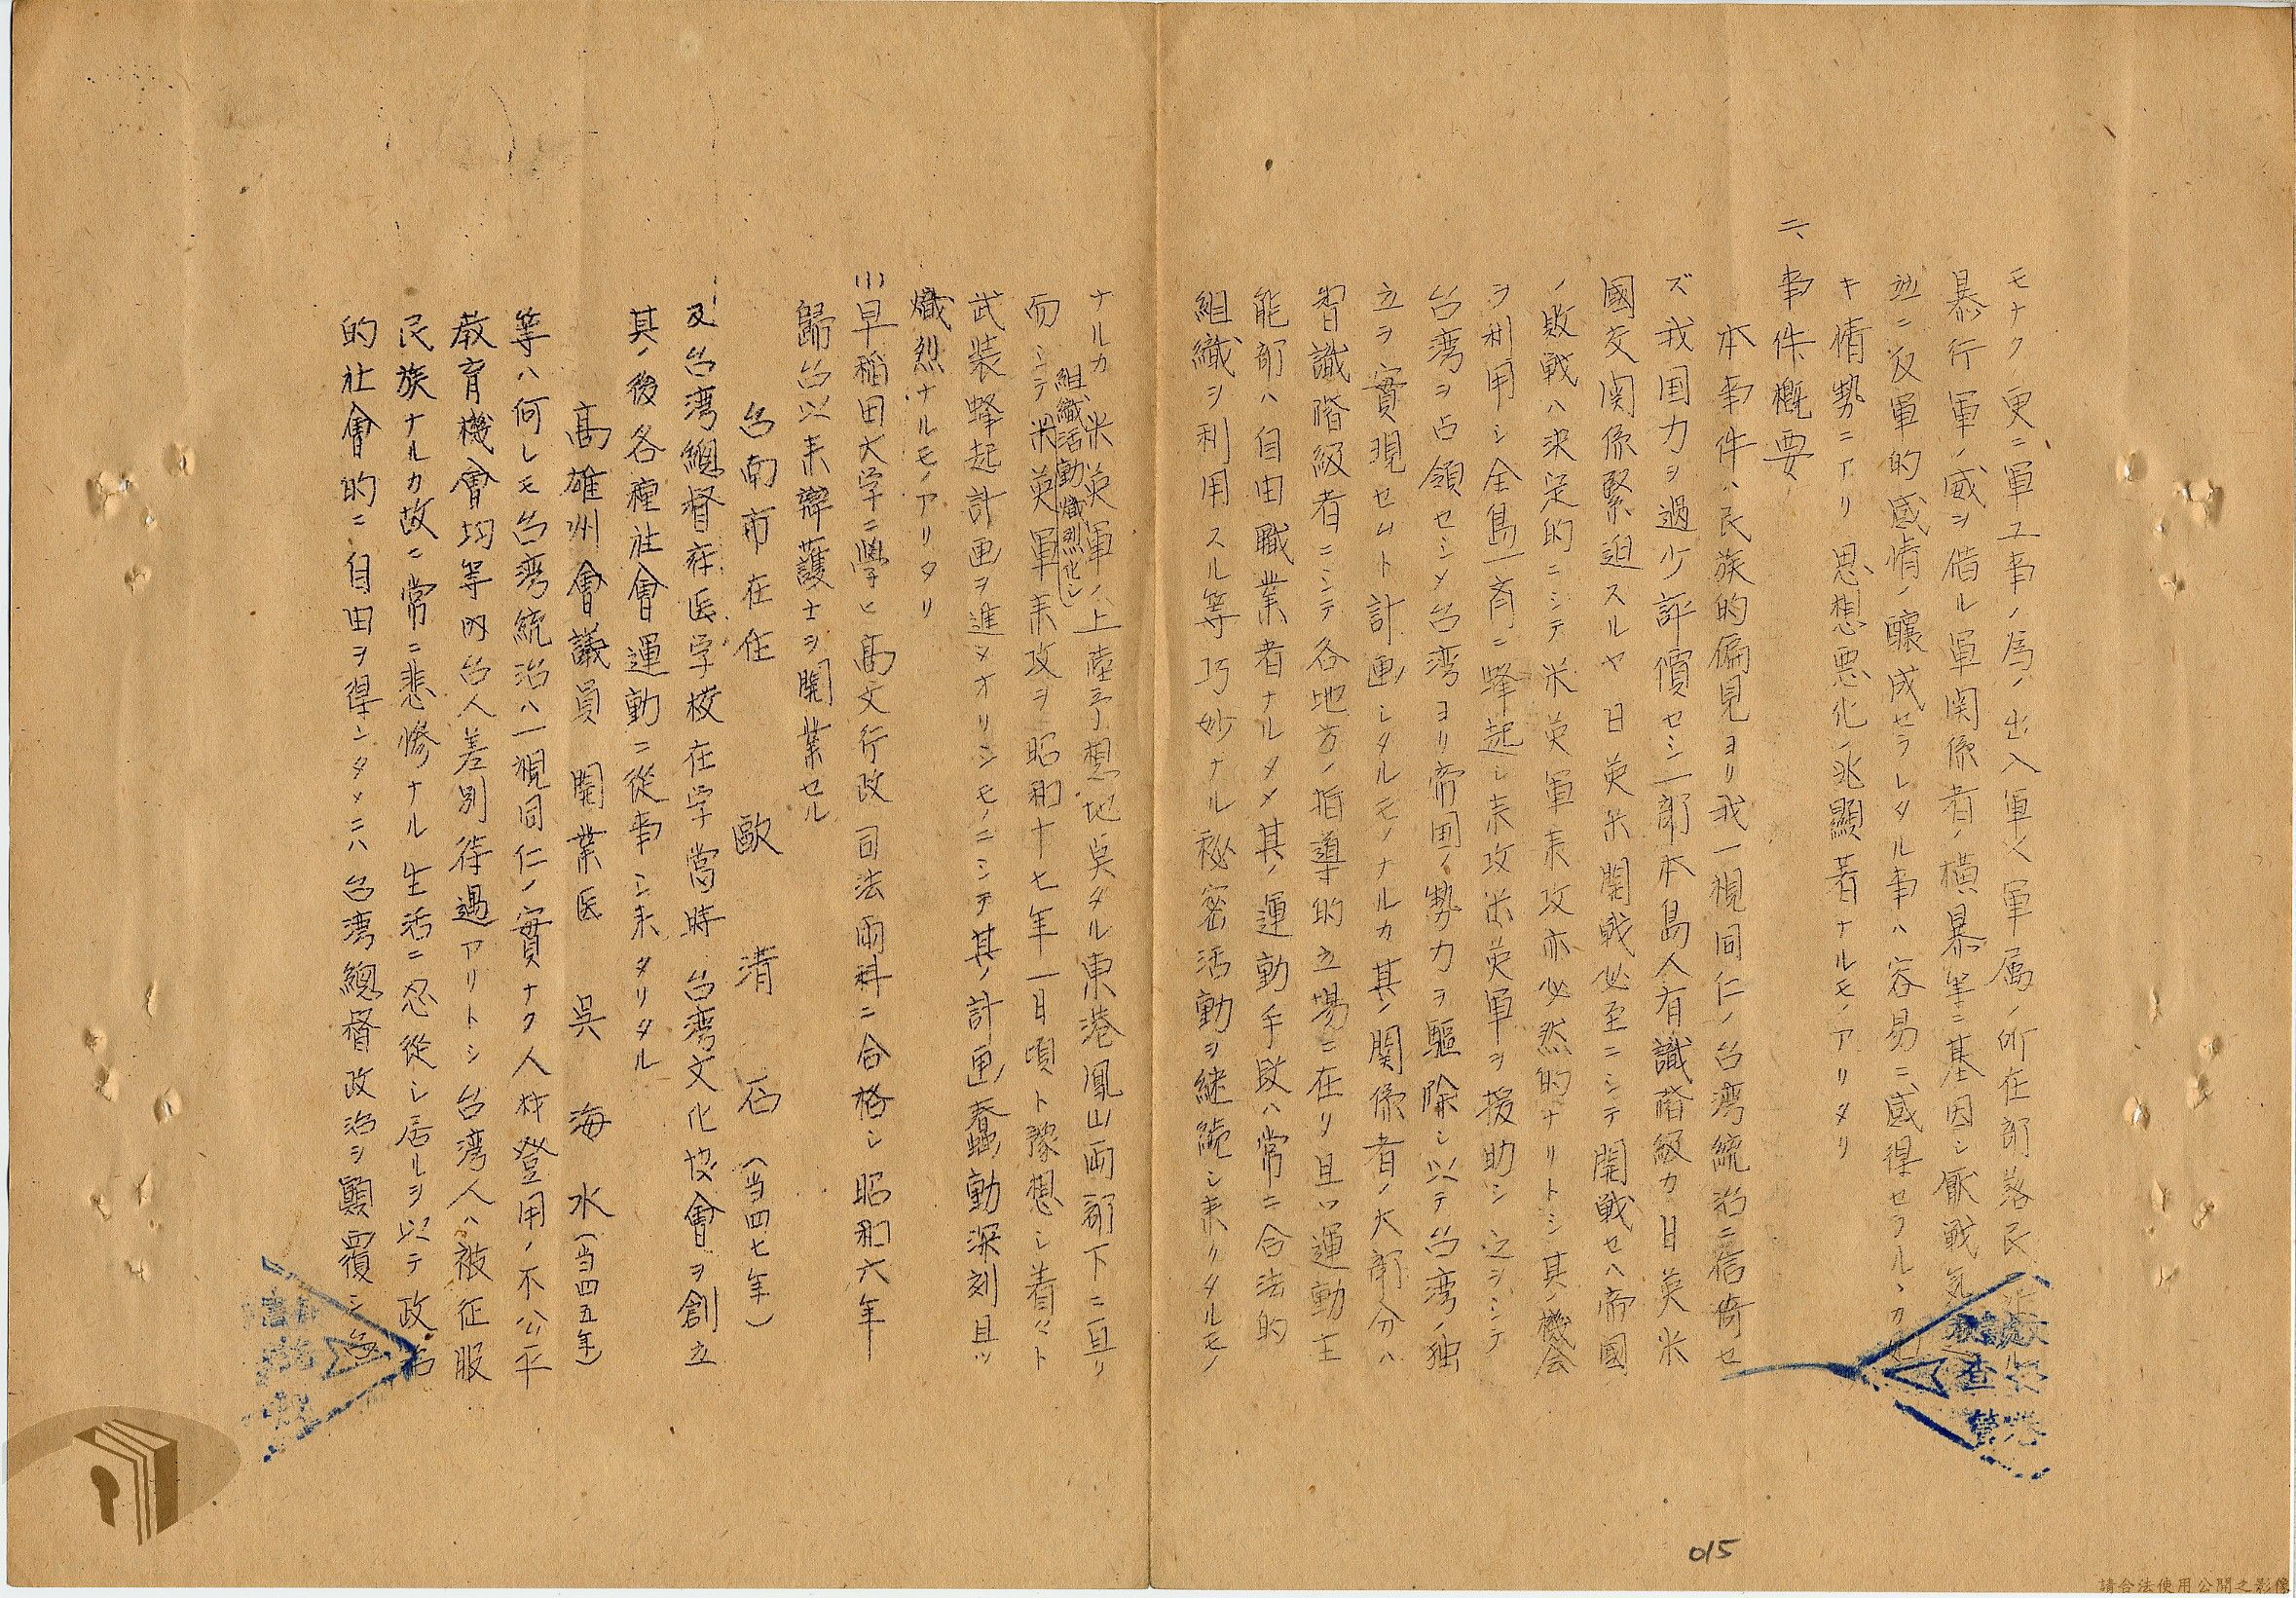 モナク更ニ軍工事ノ為ノ出入軍人軍属ノ所在部落民ニ
暴行軍ノ威ヲ借ル軍関係者ノ横暴等ニ基因シ厭戦気
並ニ反軍的感情ノ醸成セラレタル事ハ容易ニ感得セラルヽカ如
キ情勢ニアリ思想悪化ノ兆顕著ナルモノアリタリ
二、事件概要
本事件ハ民族的偏見ヨリ我一視同仁ノ台湾統治ニ信倚セ
ズ我国力ヲ過少評價セシ一部本島人有識階級カ日英米
國交関係緊迫スルヤ日英米開戦必至ニシテ開戦セハ帝國
ノ敗戦ハ決定的ニシテ米英軍来攻亦必然的ナリトシ其ノ機会
ヲ利用シ全島一斉ニ蜂起シ来攻米英軍ヲ援助シ之ヲシテ
台湾ヲ占領セシメ台湾ヨリ帝国ノ勢力ヲ驅除シ以テ台湾ノ独
立ヲ實現セムト計画シタルモノナルカ其ノ関係者ノ大部分ハ
智識階級者ニシテ各地方ノ指導的立場ニ在リ且ツ運動主
能部ハ自由職業者ナルタメ其ノ運動手段ハ常ニ合法的
組織ヲ利用スル等巧妙ナル秘密活動ヲ継続シ来リタルモノ
ナルカ米英軍ノ上陸予想地臭ダル東港鳳山両郡下ニ亘リ
組織活動熾烈化シ
而シテ米英軍来攻ヲ昭和十七年一日頃ト豫想シ着々ト
武装蜂起計画ヲ進メオリシモノニシテ其ノ計画蠢動深刻且ツ
熾烈ナルモノアリタリ
(1)早稲田大学ニ學ヒ高文行政司法両科ニ合格シ昭和六年
歸台以来辯護士ヲ開業セル
台南市在住 歐清石(当四七年)
及台湾總督府医学校在学當時台湾文化協會ヲ創立
其ノ後各種社會運動ニ從事シ来タリタル
高雄州會議員 開業医 呉海水(当四五年)
等ハ何レモ台湾統治ハ一視同仁ノ實ナク人材登用ノ不公平
教育機會均等内台人差別待遇アリトシ台湾人ハ被征服
民族ナルカ故ニ常ニ悲惨ナル生活ニ忍從シ居ルヲ以テ政治
的社會的ニ自由ヲ得ンタメニハ台湾總督政治ヲ顚覆シ台
015
請合法使用公開之影像